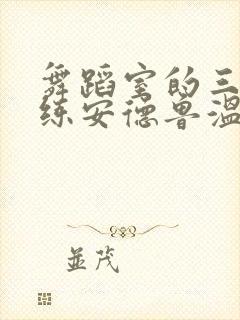 舞蹈室的三
练安德鲁温
並茂